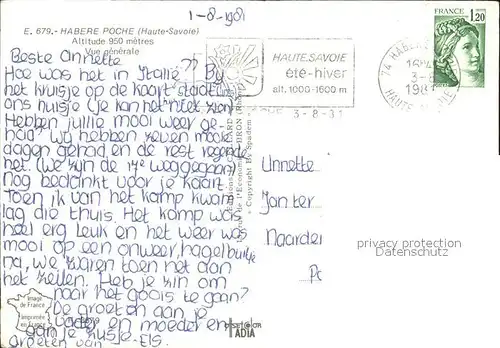 1-8-1981
E. 679.- HABERE POCHE (Haute-Savoie)
Altitude 950 mètres
Vue générale
Beste Annette
Hoe was het in Italië?? By
het kruisje op de kaart staat
ons huisje (je kan het niet zien)
Hebben jullie mooi weer ge-
had? Wij hebben zeven mooie
dagen gehad en de rest regende
het. (We zijn de 17e weggegaan)
Nog bedankt voor je kaart.
Toen ik van het kamp kwam
lag die thuis. Het kamp was
heel erg leuk en het weer was
mooi op een onweer, hagelbuitje
na, we waren toen net aan
het zeilen. Heb je zin om
naar het goois te gaan?
De groeten aan je
vader en moeder en
aan je zusje.
Groeten van Els.
HAUTE.SAVOIE
été-hiver
alt. 1000-1600 m
74 HABERE
3-8
1981
HAUTE
FRANCE
1,20
3-8-31
Annette
Jan ter
Naarden
privacy protection
Datenschutz
Copyright by Spadem
Image
de France
Imprimée
en France
ADIA